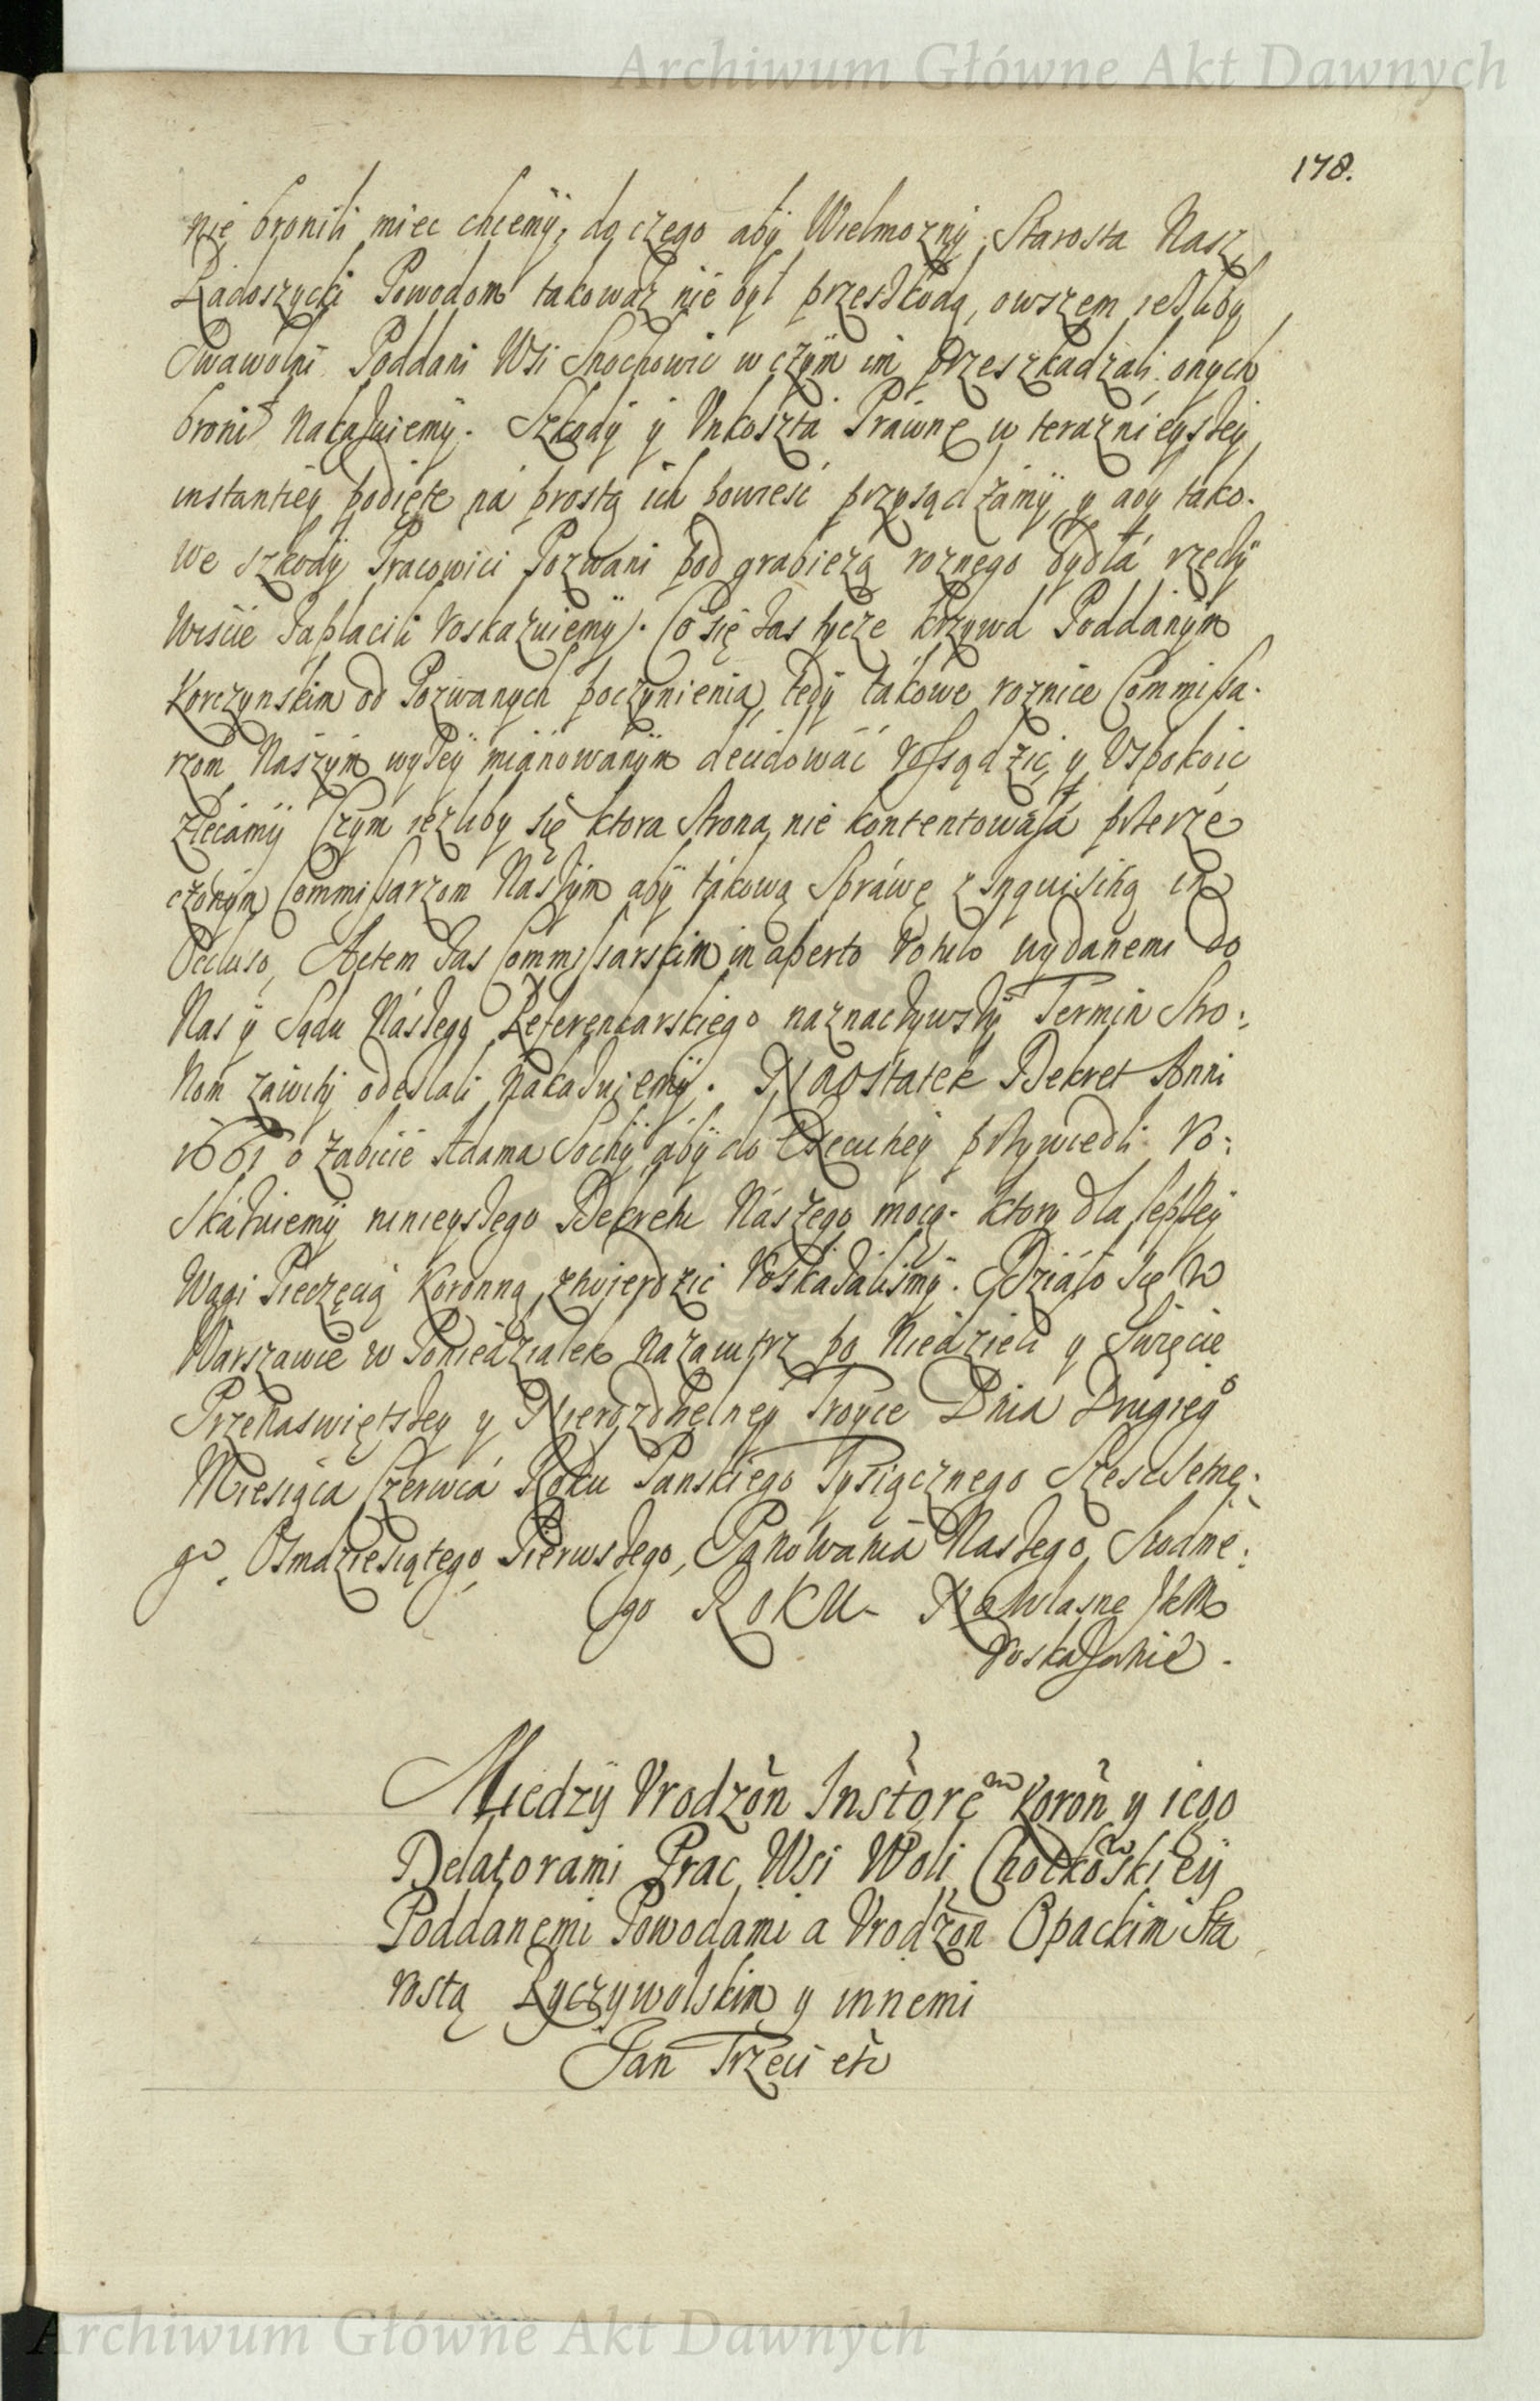 Archiwum Główne Akt Dawnych
178.
nie bronili miec chcemÿ, do czego abÿ Wielmoznÿ Starosta Nasz
Radoszycki Powodom takowaz nie był przeszkodą, owszem ieśliby
Swawolni Poddani Wsi Snochowic w czÿm im przeszkadzali onych
bronić nakazuiemÿ. Szkodÿ ÿ Vnkoszta Prawne w teraznieyszey
instantiey podięte na prostą ich powiesć przysądzamÿ, y aby tako.
we szkodÿ Pracowici Pozwani pod grabiezą roznego bydła rzeczÿ
wiscie zapłacili roskazuiemÿ. Co się zas tycze krzywd Poddanÿm
Korczynskim od Pozwanych poczynienia, tedÿ takowe roznice Commissa.
rzom Naszÿm wyzeÿ mianowanÿm decidować rossądzić y Vspokoic
zlecamÿ Czym iezliby się ktora Strona nie kontentowała przerze
czonÿm Commissarzom Naszÿm abÿ takową Sprawę z Inquisitią in
Occluso, Actem zas Commissarskim in aperto rotulo wydanemi do
Nas ÿ Sądu Naszego Referendarskiego naznaczywszÿ Termin Stro:
nom zawitÿ odeslali nakazuiemÿ. Naostatek Dekret Anni
1661 o zabicie Adama Sochÿ abÿ do Executiey przywiedli Ro:
skazuiemÿ ninieyszego Dekretu Naszego mocą. ktory dla lepszey
Wagi Pieczęcią Koronną ztwierdzić Roskazalismÿ. Działo się w
Warszawie w Poniedziałek nazaiutrz po Niedzieli y Swięcie
Przenaswiętszey y Nierozdzielney Troyce Dnia Drugiego
Miesiąca Czerwca Roku Panskiego Tysiącznego Szescsetne:
go, Osmdziesiątego Pierwszego, Panowania Naszego Siodme:
go Roku Na własne JKM
roskazanie.
Miedzÿ Vrodzon Instore͂m Koron y iego
Delatorami Prac Wsi Woli Chotkowskiey
Poddanemi Powodami a Vrodzon Opackim Sta
rostą Ryczywolskim y innemi
Jan Trzeci etc
Archiwum Główne Akt Dawnych